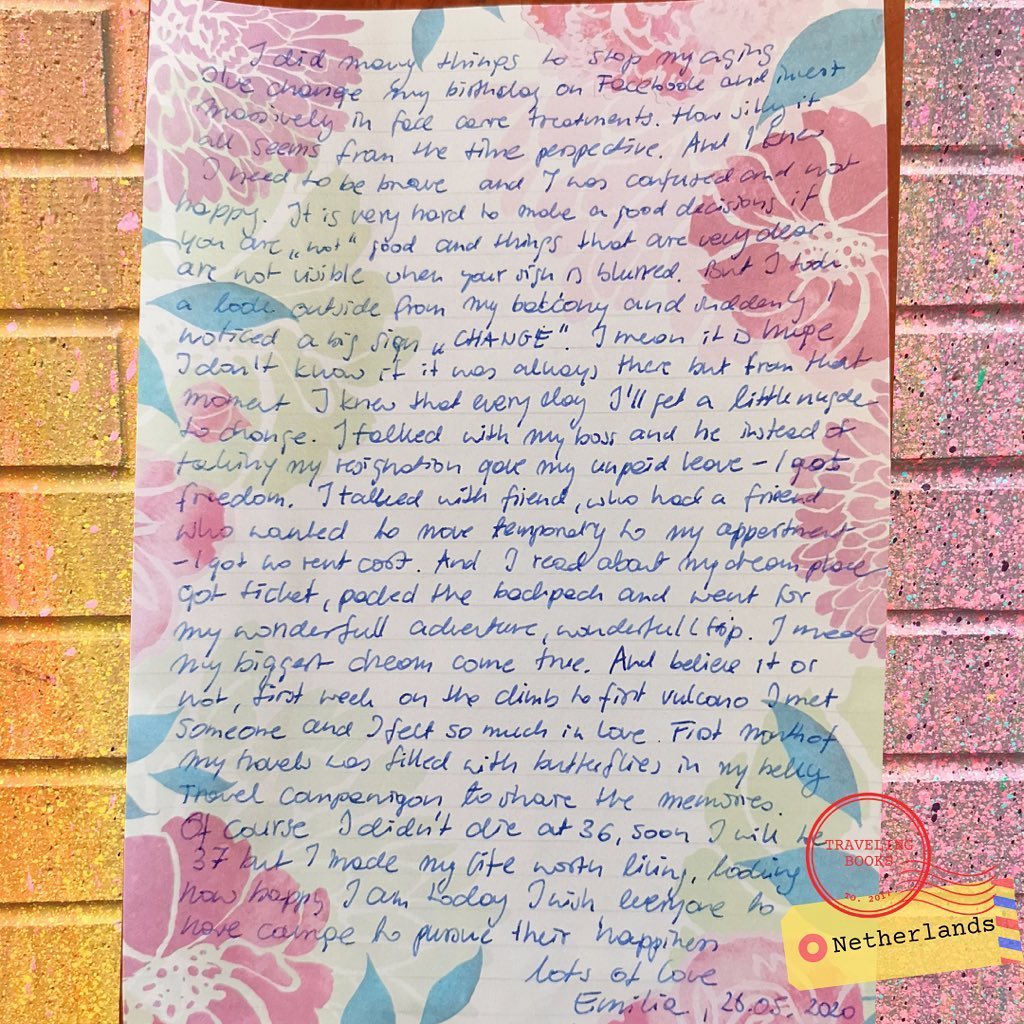 I did many things to stop my aging
I've change my birthday on Facebook and invest
massively in face care treatments. How silly it
all seems from the time perspective. And I knew
I need to be brave and I was confused and not
happy. It is very hard to make a good decisions if
you are „not" good and things that are very clear
are not visible when your sigh is blurred. But I took
a look outside from my balcony and suddenly I
noticed a big sign „CHANGE". I mean it is huge
I don't know if it was always there but from that
moment I knew that every day I'll get a little nugde
to change. I talked with my boss and he instead of
taking my resignation gave my unpaid leave - I got
freedom. I talked with friend, who had a friend
who wanted to move temporary to my appertment
- I got no rent cost. And I read about my dream place
got ticket, packed the backpack and went for
my wonderfull adventure, wonderfull trip. I made
my biggest dream come true. And believe it or
not, first week on the climb to first vulcano I met
someone and I felt so much in love. First month of
my travels was filled with butterflies in my belly
Travel companigon to share the memories.
Of course I didn't die at 36, soon I will be
37 but I made my life worth living, looking
how happy I am today I wish everyone to
have courage to pursue their happiness
lots of love
Emilia, 26.05. 2020
TRAVELING
BOOKS
Netherlands